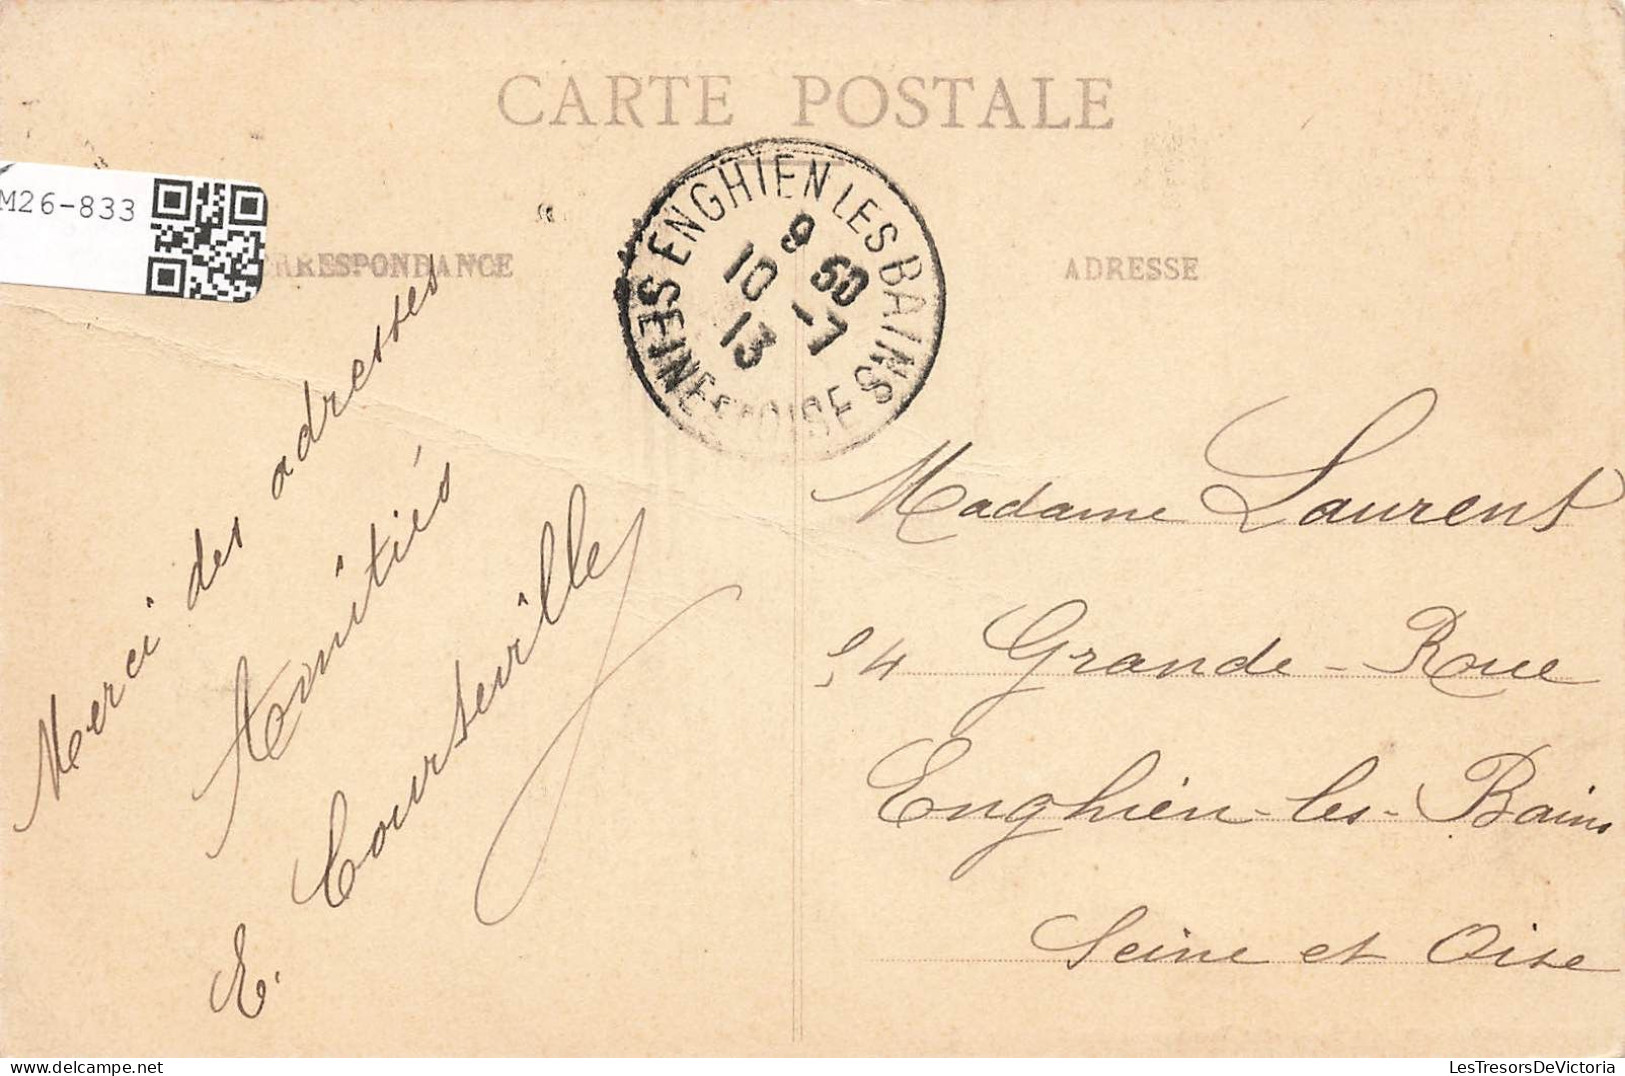 CARTE POSTALE
M26-833
RRESPONDANCE
ADRESSE
ENGHIEN LES BAINS
9 50
10 -7
13
SEINE ET OISE
Merci des adresses
Amitiés
E. Courseville
Madame Laurent
54 Grande-Roue
Enghien-les-Bains
Seine et Oise
LesTresorsDeVictoria